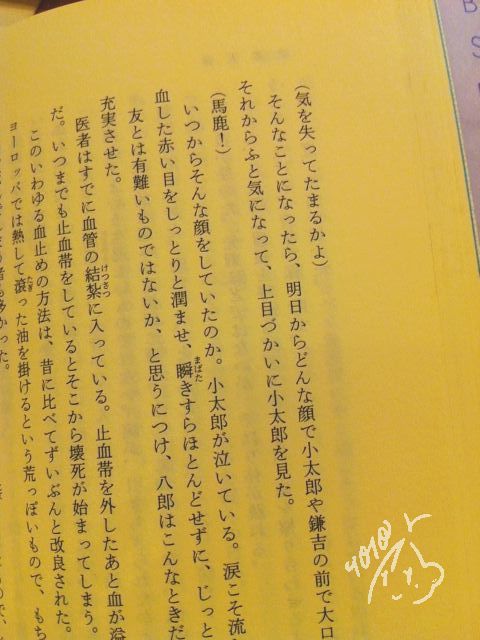 （気を失ってたまるかよ）
そんなことになったら、明日からどんな顔で小太郎や鎌吉の前で大口
それからふと気になって、上目づかいに小太郎を見た。
（馬鹿！）
いつからそんな顔をしていたのか。小太郎が泣いている。涙こそ流
血した赤い目をしっとりと潤ませ、瞬きすらほとんどせずに、じっと
友とは有難いものではないか、と思うにつけ、八郎はこんなときだ
充実させた。
医者はすでに血管の結紮に入っている。止血帯を外したあと血が溢
だ。いつまでも止血帯をしているとそこから壊死が始まってしまう。
このいわゆる血止めの方法は、昔に比べてずいぶんと改良された。
ヨーロッパでは熱して滾った油を掛けるという荒っぽいもので、もち
多かった。